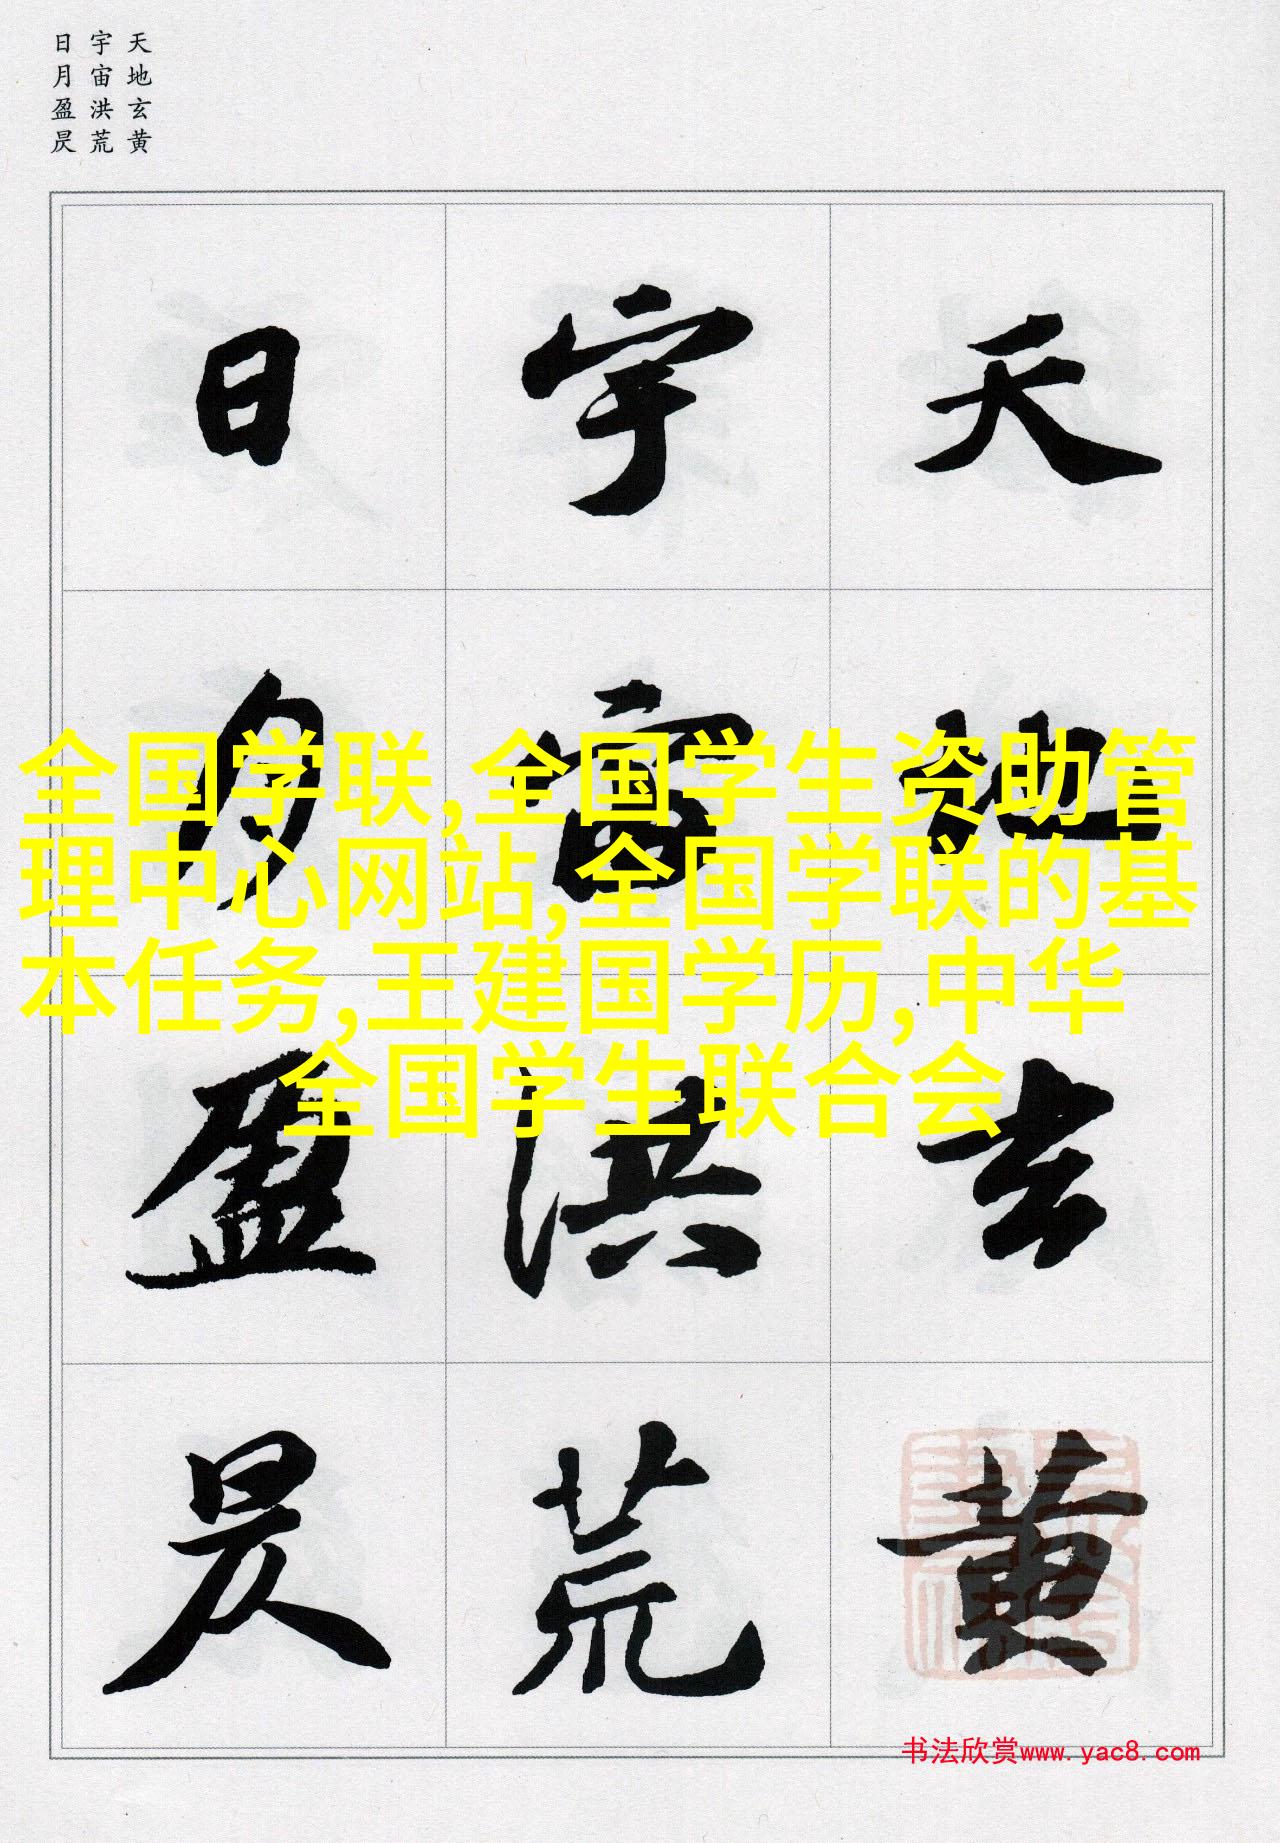 天地玄黄
宇宙洪荒
日月盈昃
天地玄黄
宇宙洪荒
日月盈昃
全国学联,全国学生资助管
理中心网站,全国学联的基
本任务,王建国学历,中华
全国学生联合会
书法欣赏www.yac8.com